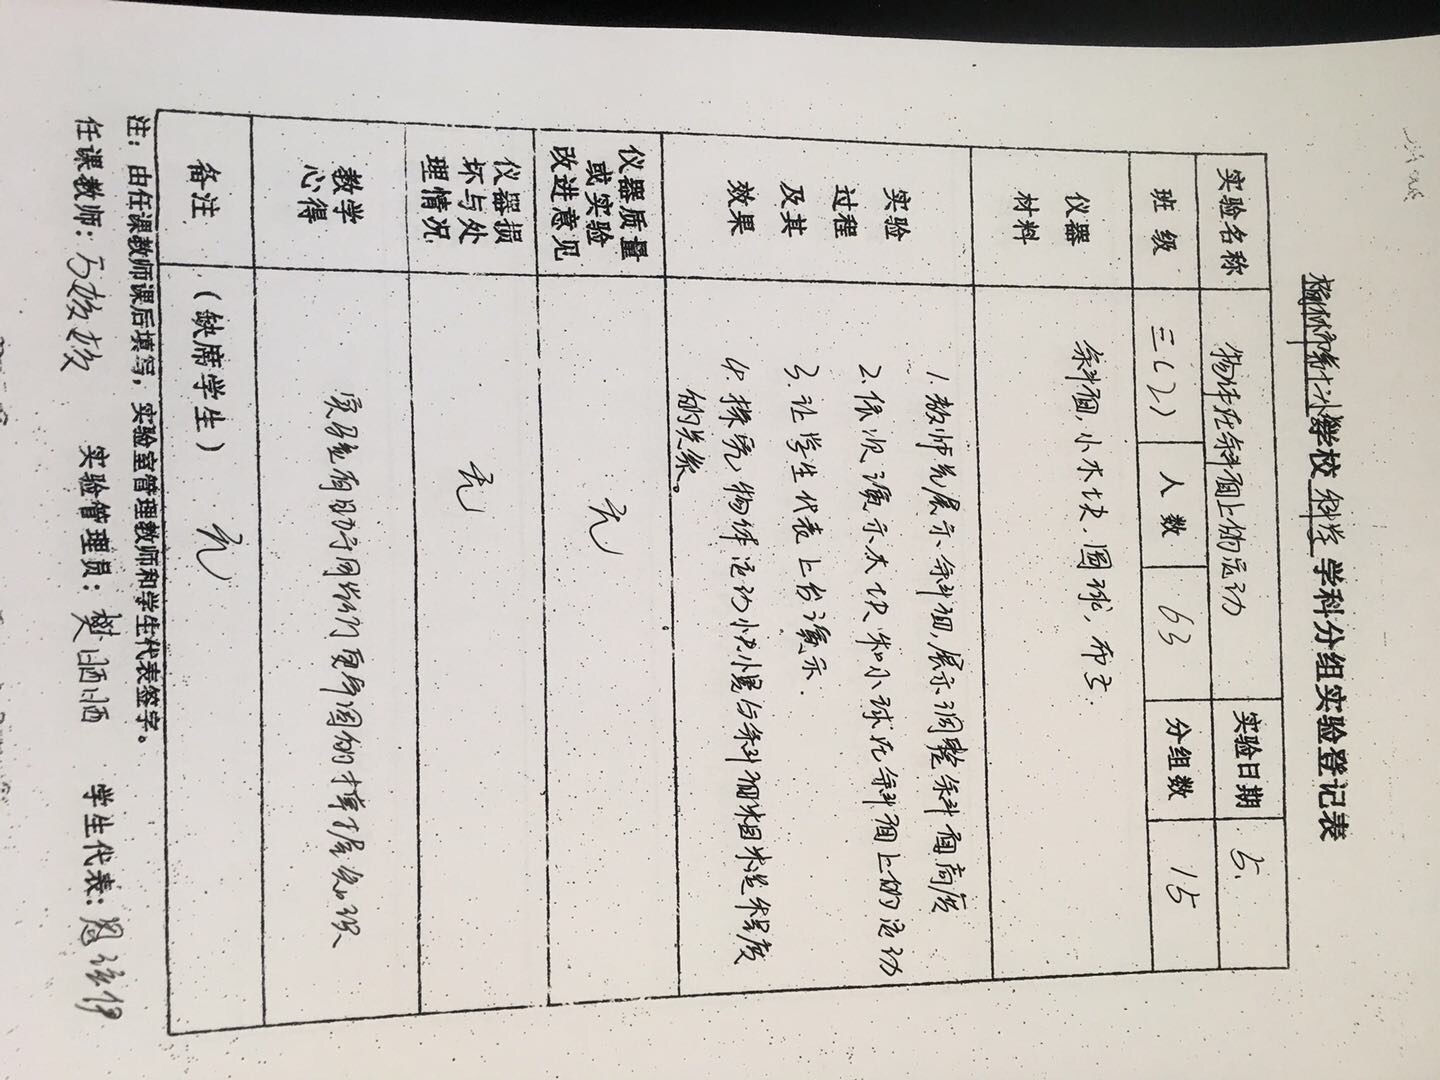 榆林市第十小学校 科学 学科分组实验登记表
实验名称 物体在斜面上的运动 实验日期 5.
班级 三(2) 人数 63 分组数 15
仪器材料 斜面,小木块,圆球,布
实验过程及其效果
1.教师先展示斜面,展示调整斜面高度
2.依次演示木块和小球在斜面上的运动
3.让学生代表上台演示.
4.探究物体运动 与斜面 度
的关系。
仪器质量或实验改进意见 无
仪器损坏与处理情况 无
教学心得 实验有助于同学们更牢固的掌握知识
备注 (缺席学生) 无
注:由任课教师课后填写,实验室管理教师和学生代表签字。
任课教师: 实验管理员:樊 学生代表: